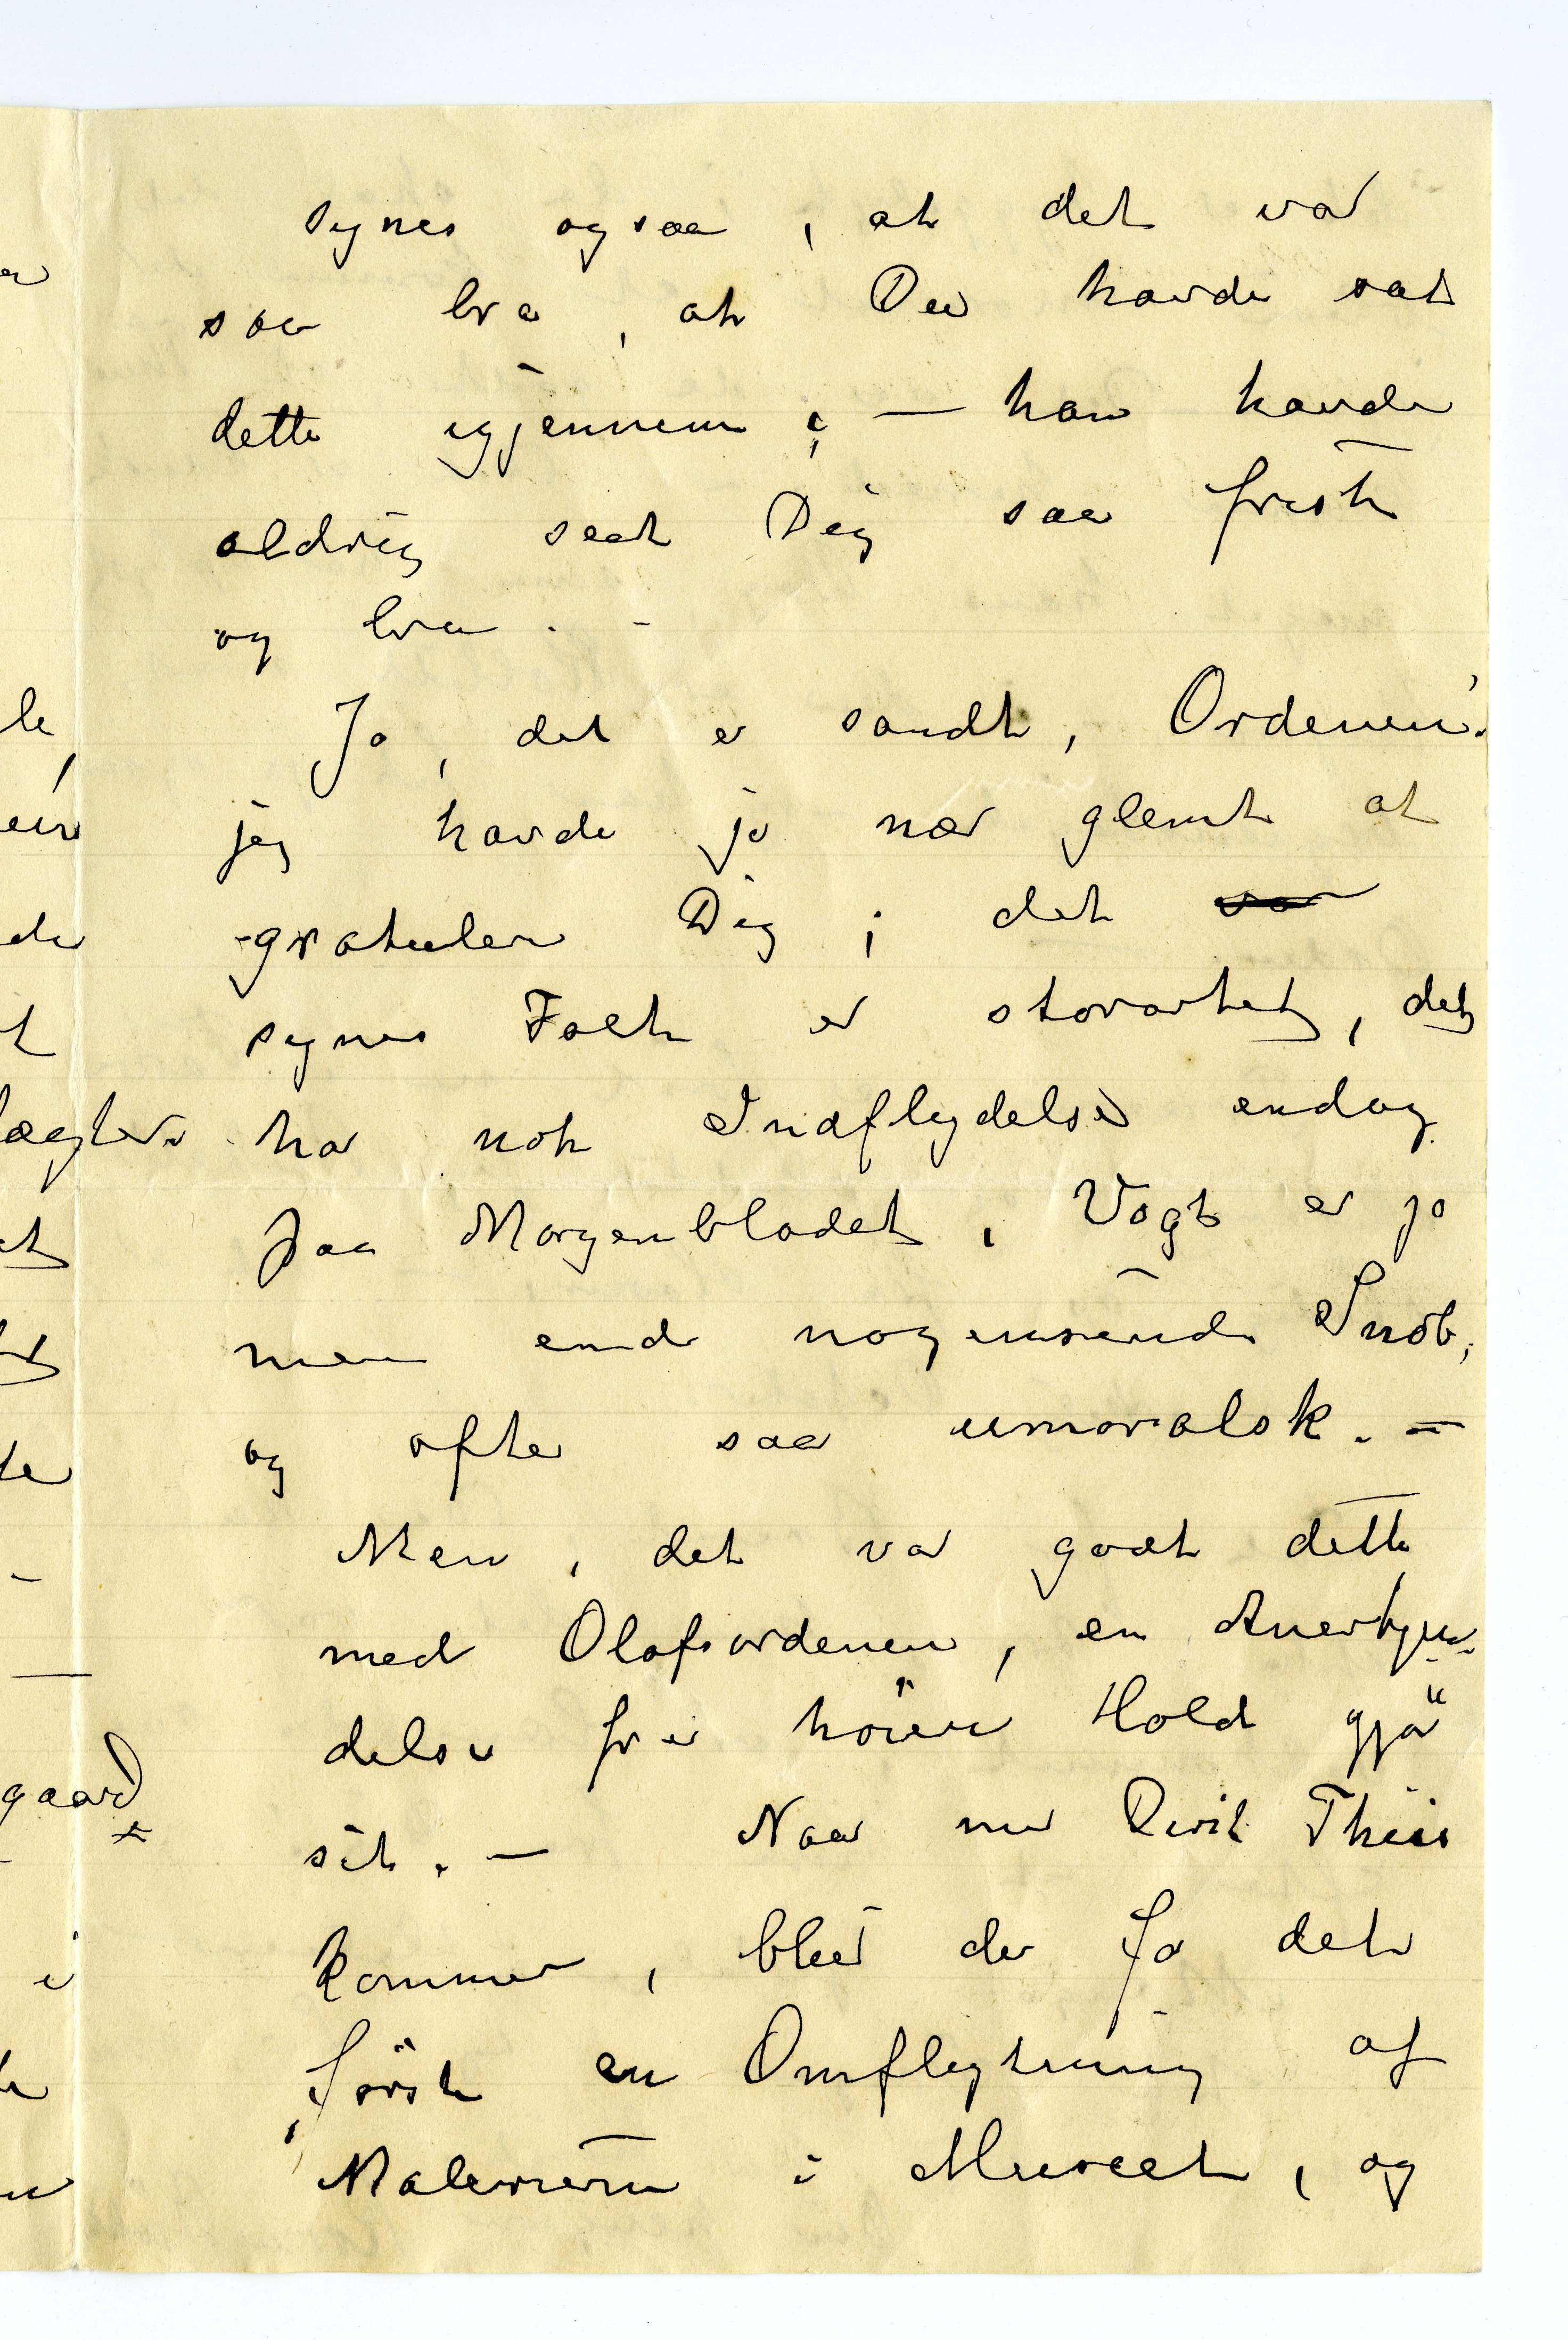 synes ogsaa, at det var
saa bra, at Du havde sat
dette igjennem; — han havde
aldrig seet Dig saa frisk
og bra. -
Ja, det er sandt, Ordenen!
jeg havde jo nær glemt at
gratulere Dig; det
synes Folk er storartet, det
har nok Indflydelse endog
paa Morgenbladet, Vogt er jo
mer end nogensinde Snob,
og ofte saa umoralsk. —
Men, det var godt dette
med Olafsordenen, en Anerkjen-
delse fra høiere Hold gjør
sit. — Naar nu Thiis
kommer, blir der fra det
første en Omflytning af
Malerierne i Museet, og
le,
de
lægter
te
—
gaard
i